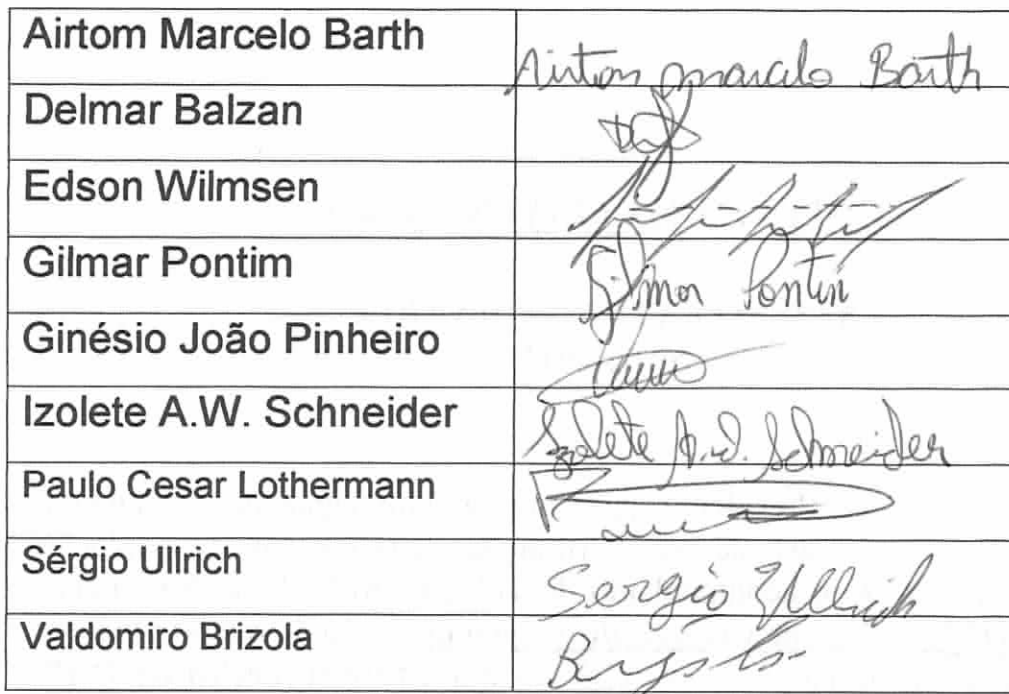 Airtom Marcelo Barth Airton Marcelo Barth
Delmar Balzan
Edson Wilmsen
Gilmar Pontim Gilmar Pontin
Ginésio João Pinheiro
Izolete A.W. Schneider Izolete A.W. Schneider
Paulo Cesar Lothermann
Sérgio Ullrich Sergio Ullrich
Valdomiro Brizola